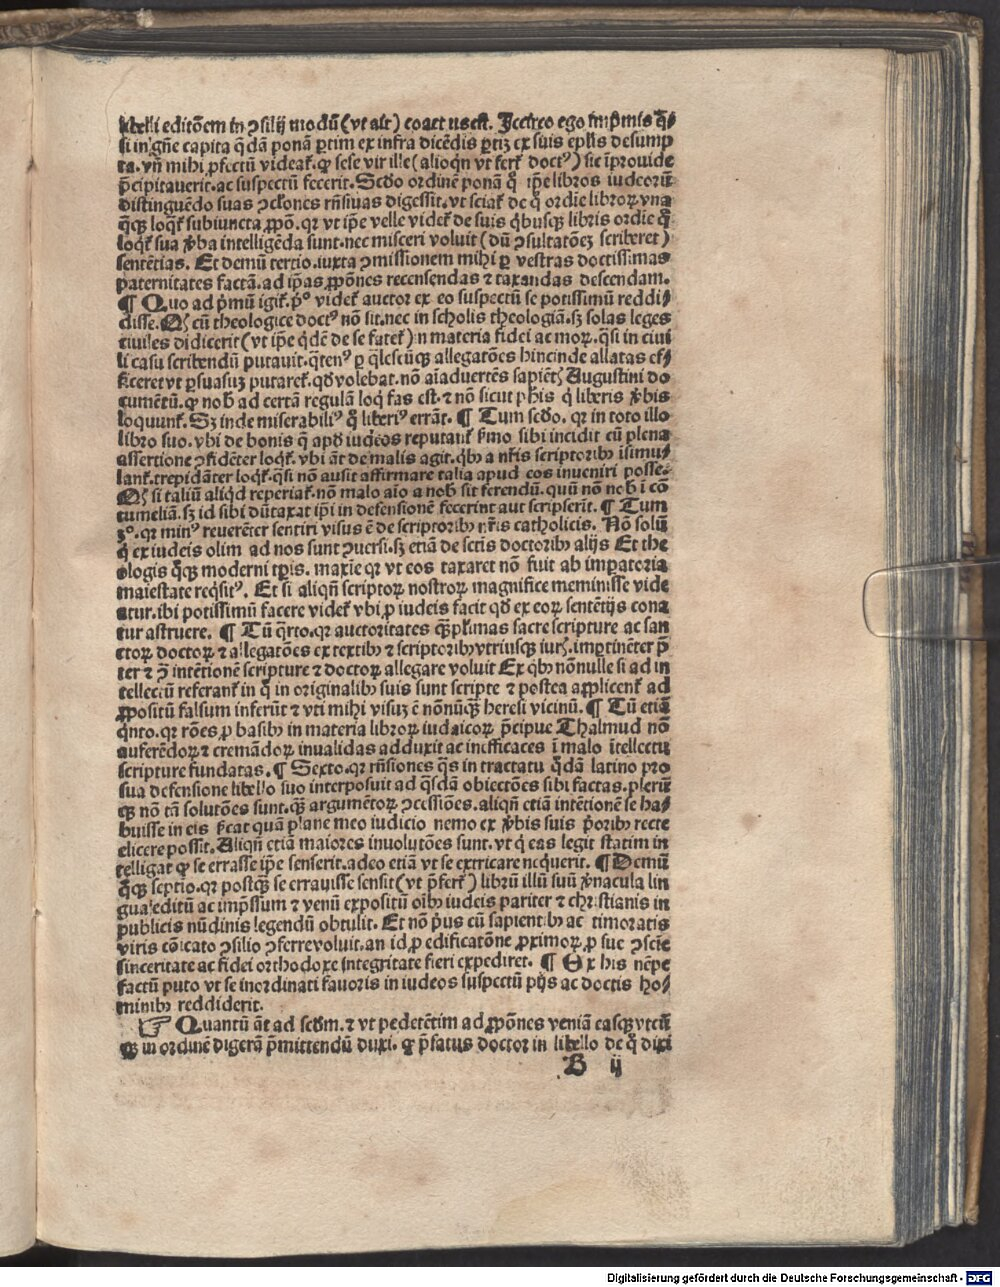 libelli editõem in ꝯsilij modũ (vt ait) coactus est. Jccirco ego inprimis q̃⸗
si in gñe capita q̃dã ponã ꝑtim ex infra dicẽdis ꝑtiȝ ex suis eplis desump
ta. vñ mihi ꝑfectũ videaf. ꝙ sese vir ille (alioqñ vt ferf doctꝰ) sic ĩprouide
p̃cipitauerit. ac suspectũ fecerit. Scďo ordinẽ ponã q̊ ip̃e libros iudeorũ
distinguẽdo suas ꝯclones rñsiuas digessit. vt sciaf de q̊ ordie libroꝝ vna
q̃qȝ loqf subiuncta ꝓpõ. qꝛ vt ip̃e velle videf de suis q̃busqȝ libris ordie q̊
loqf sua ꝟba intelligẽda sunt. nec misceri voluit (dũ ꝯsultatõeȝ scriberet)
sentẽtias. Et demũ tertio. iuxta ꝯmissionem mihi ꝑ vestras doctissimas
paternitates factã. ad ip̃as ꝓpõnes recensendas ⁊ taxandas descendam.
¶ Quo ad p̃mũ igif. p̊ videf auctor ex eo suspectũ se potissimũ reddi⸗
disse. Qȝ cũ theologice doctꝰ nõ sit. nec in scholis theologiã. sȝ solas leges
ciuiles didicerit (vt ip̃e q̇dẽ de se fatef) in materia fidei ac moꝝ. q̃si in ciui
li casu scribendũ putauit. q̃tenꝰ ꝑ q̃lescũqȝ allegatões hincinde allatas ef⸗
ficeret vt ꝑsuasuȝ putaref. qď volebat. nõ aĩaduertẽs sapiẽtꝭ Augustini do
cumẽtũ. ꝙ nob̃ ad certã regulã loq̇ fas est. ⁊ nõ sicut phis q̇ liberis ꝟbis
loquunf. Sȝ inde miserabiliꝰ q̊ liberiꝰ errãt. ¶ Tum scďo. qꝛ in toto illo
libro suo. vbi de bonis q̃ apď iudeos reputanf ẜmo sibi incidit cũ plena
assertione ꝯfidẽter loqf. vbi ãt de malis agit. q̃bꝰ a nr̃is scriptoribꝰ ĩsimu⸗
lanf. trepidãter loqf. q̃si nõ ausit affirmare talia apud eos inueniri posse.
Qȝ si taliũ aliq̇d reperiaf. nõ malo aĩo a nob̃ sit ferendũ. quũ nõ nob̃ ĩ cõ
tumeliã. sȝ id sibi dũtaxat ip̃i in defensionẽ fecerint aut scripserit. ¶ Tum
3ꝰ. qꝛ minꝰ reuerẽter sentiri visus ẽ de scriptoribꝰ nr̃is catholicis. Nõ solũ
q̇ ex iudeis olim ad nos sunt ꝯuersi. sȝ etiã de sctis doctoribꝰ alijs Et the
ologis q̃qȝ moderni tp̃is. maxie qꝛ vt eos taxaret nõ fuit ab imꝑatoria
maiestate reqsitꝰ. Et si aliqñ scriptoꝝ nostroꝝ magnifice meminisse vide
atur. ibi potissimũ facere videf vbi ꝓ iudeis facit qď ex eoꝝ sentẽtijs cona
tur astruere. ¶ Tũ q̃rto. qꝛ auctoritates q̃ȝplimas sacre scripture ac san
ctoꝝ doctoꝝ ⁊ allegatões ex textibꝰ ⁊ scriptoribꝰ vtriusqȝ iurꝭ. imꝑtinẽter p̃
ter ⁊ ꝯ̃ intẽtionẽ scripture ⁊ doctoꝝ allegare voluit Ex q̃bꝰ nõnulle si ad in
tellectũ referanf in q̊ in originalibꝰ suis sunt scripte ⁊ postea applicenf ad
ꝓpositũ falsum inferũt ⁊ vti mihi visuȝ ẽ nõnũqȝ heresi vicinũ. ¶ Tũ etiã
q̃nto. qꝛ rões ꝓ basibꝰ in materia libroꝝ iudaicoꝝ p̃cipue Thalmud nõ
auferẽdoꝝ ⁊ cremãdoꝝ inualidas adduxit ac inefficaces ĩ malo ĩtellectu
scripture fundatas. ¶ Sexto. qꝛ rñsiones q̃s in tractatu q̊dã latino pro
sua defensione libello suo interposuit ad q̃sdã obiectões sibi factas. plerũ
qȝ nõ tã solutões sunt. qȝ argumẽtoꝝ ꝯcessiões. aliqñ etiã intẽtionẽ se ha⸗
buisse in eis p̃cat quã plane meo iudicio nemo ex ꝟbis suis p̃oribꝰ recte
elicere possit. Aliqñ etiã maiores inuolutões sunt. vt q̇ eas legit statim in
telligat ꝙ se errasse ip̃e senserit. adeo etiã vt se extricare nequerit. ¶ Demũ
q̃qȝ septĩo. qꝛ postqȝ se errauisse sensit (vt p̃ferf) librũ illũ suũ ꝟnacula lin
gua editũ ac imp̃ssum ⁊ venũ expositũ oĩbꝰ iudeis pariter ⁊ christianis in
publicis nũdinis legendũ obtulit. Et nõ p̃us cũ sapientibꝰ ac timoratis
viris cõicato ꝯsilio ꝯferre voluit. an id ꝓ edificatõne ꝓximoꝝ. ꝓ sue ꝯscie
sinceritate ac fidei orthodoxe integritate fieri expediret. ¶ Ex his nẽpe
factũ puto vt se inordinati fauoris in iudeos suspectũ pijs ac doctis ho⸗
minibꝰ reddiderit.
☞ Quantũ ãt ad scďm. ⁊ vt pedetẽtim ad ꝓpõnes veniã easqȝ vtcũ
qȝ in ordinẽ digerã p̃mittendũ duxi. ꝙ p̃fatus doctor in libello de q̊ dixi
B ij
Digitalisierung gefördert durch die Deutsche Forschungsgemeinschaft - DFG